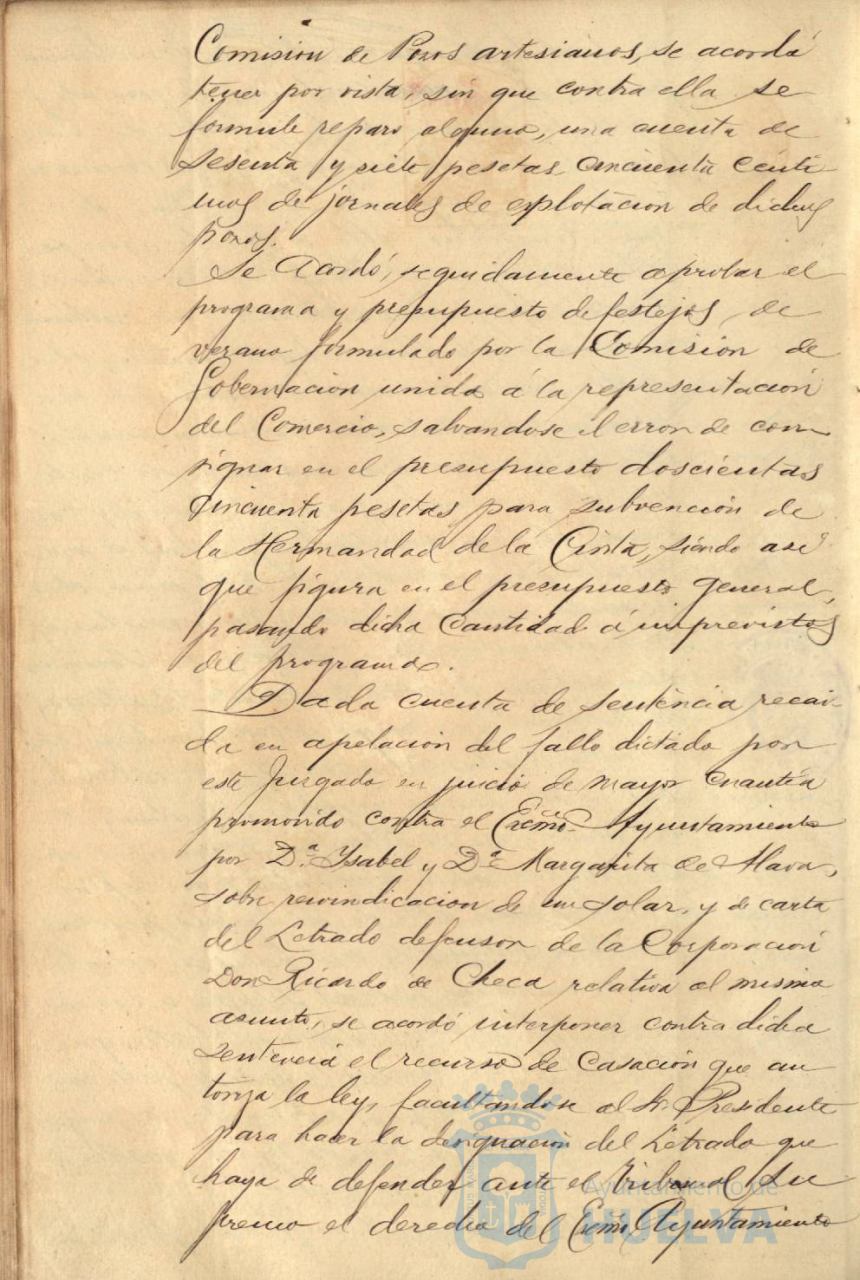 Comision de Pozos artesianos, se acordó
tener por vista, sin que contra ella se
formule reparo alguno, una cuenta de
sesenta y siete pesetas cincuenta centi-
mos de jornales de esplotacion de dichos
pozos.
Se acordó, seguidamente aprobar el
programa y presupuesto de festejos, de
verano formulado por la Comisión de
Gobernacion unida á la representación
del Comercio, salvandose el error de con-
signar en el presupuesto doscientas
cincuenta pesetas para subvención de
la Hermandad de la Cinta, siendo así
que figura en el presupuesto general,
pasando dicha cantidad á imprevistos
del programa.
Dada cuenta de sentencia recai-
da en apelación del fallo dictado por
este Juzgado en juicio de mayor cuantía
promovido contra el Excmo. Ayuntamiento
por D.ª Ysabel y D.ª Margarita de Alava,
sobre reivindicacion de un solar, y de carta
del Letrado defensor de la Corporación
Don Ricardo de Checa relativa al mismo
asunto, se acordó interponer contra dicha
sentencia el recurso de casación que au-
toriza la ley, facultandose al Sr. Presidente
para hacer la designación del Letrado que
haya de defender ante el Tribunal Su
premo el derecho del Excmo. Ayuntamiento
Ayuntamiento de
HUELVA